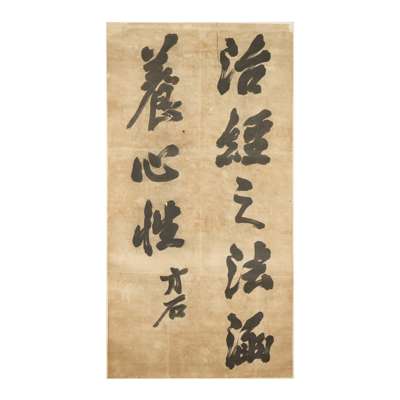 治經之法涵
養心性
方石